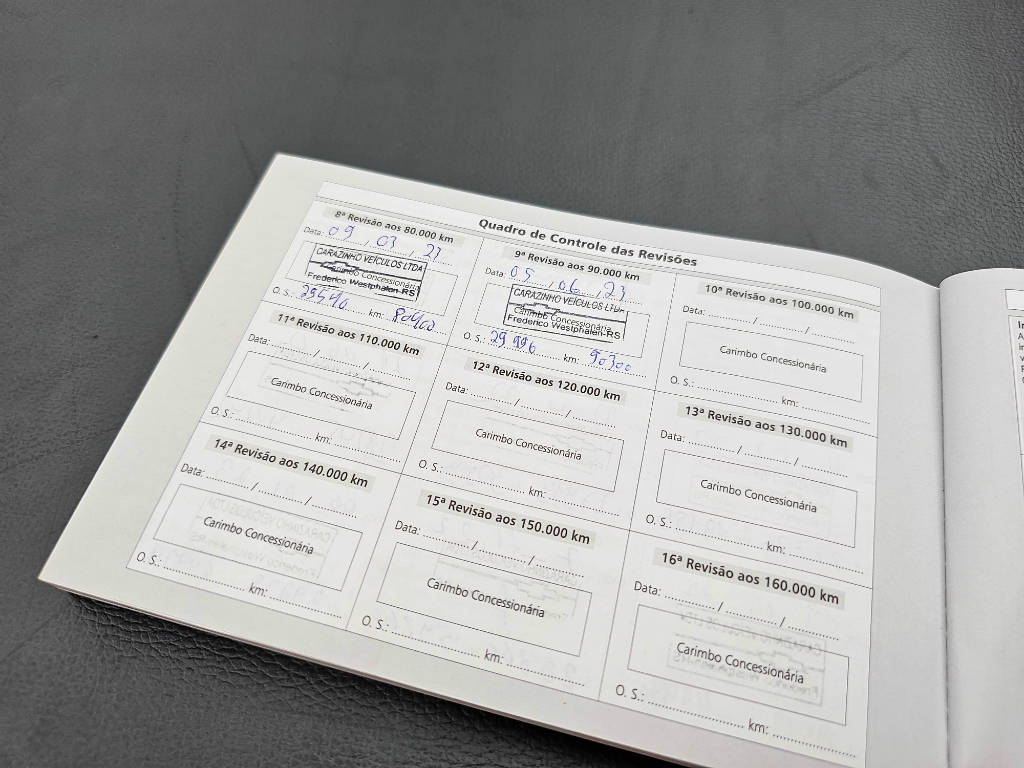 Quadro de Controle das Revisões
8ª Revisão aos 80.000 km
Data: 09 / 03 / 23
CARAZINHO VEÍCULOS LTDA
Carimbo Concessionária
Frederico Westphalen-RS
O. S.: km: 80400
9ª Revisão aos 90.000 km
Data: 05 / 06 / 23
CARAZINHO VEÍCULOS LTDA
Carimbo Concessionária
Frederico Westphalen-RS
O. S.: 29996 km: 90300
10ª Revisão aos 100.000 km
Data: / /
Carimbo Concessionária
O. S.: km:
11ª Revisão aos 110.000 km
Data: / /
Carimbo Concessionária
O. S.: km:
12ª Revisão aos 120.000 km
Data: / /
Carimbo Concessionária
O. S.: km:
13ª Revisão aos 130.000 km
Data: / /
Carimbo Concessionária
O. S.: km:
14ª Revisão aos 140.000 km
Data: / /
Carimbo Concessionária
O. S.: km:
15ª Revisão aos 150.000 km
Data: / /
Carimbo Concessionária
O. S.: km:
16ª Revisão aos 160.000 km
Data: / /
Carimbo Concessionária
O. S.: km: